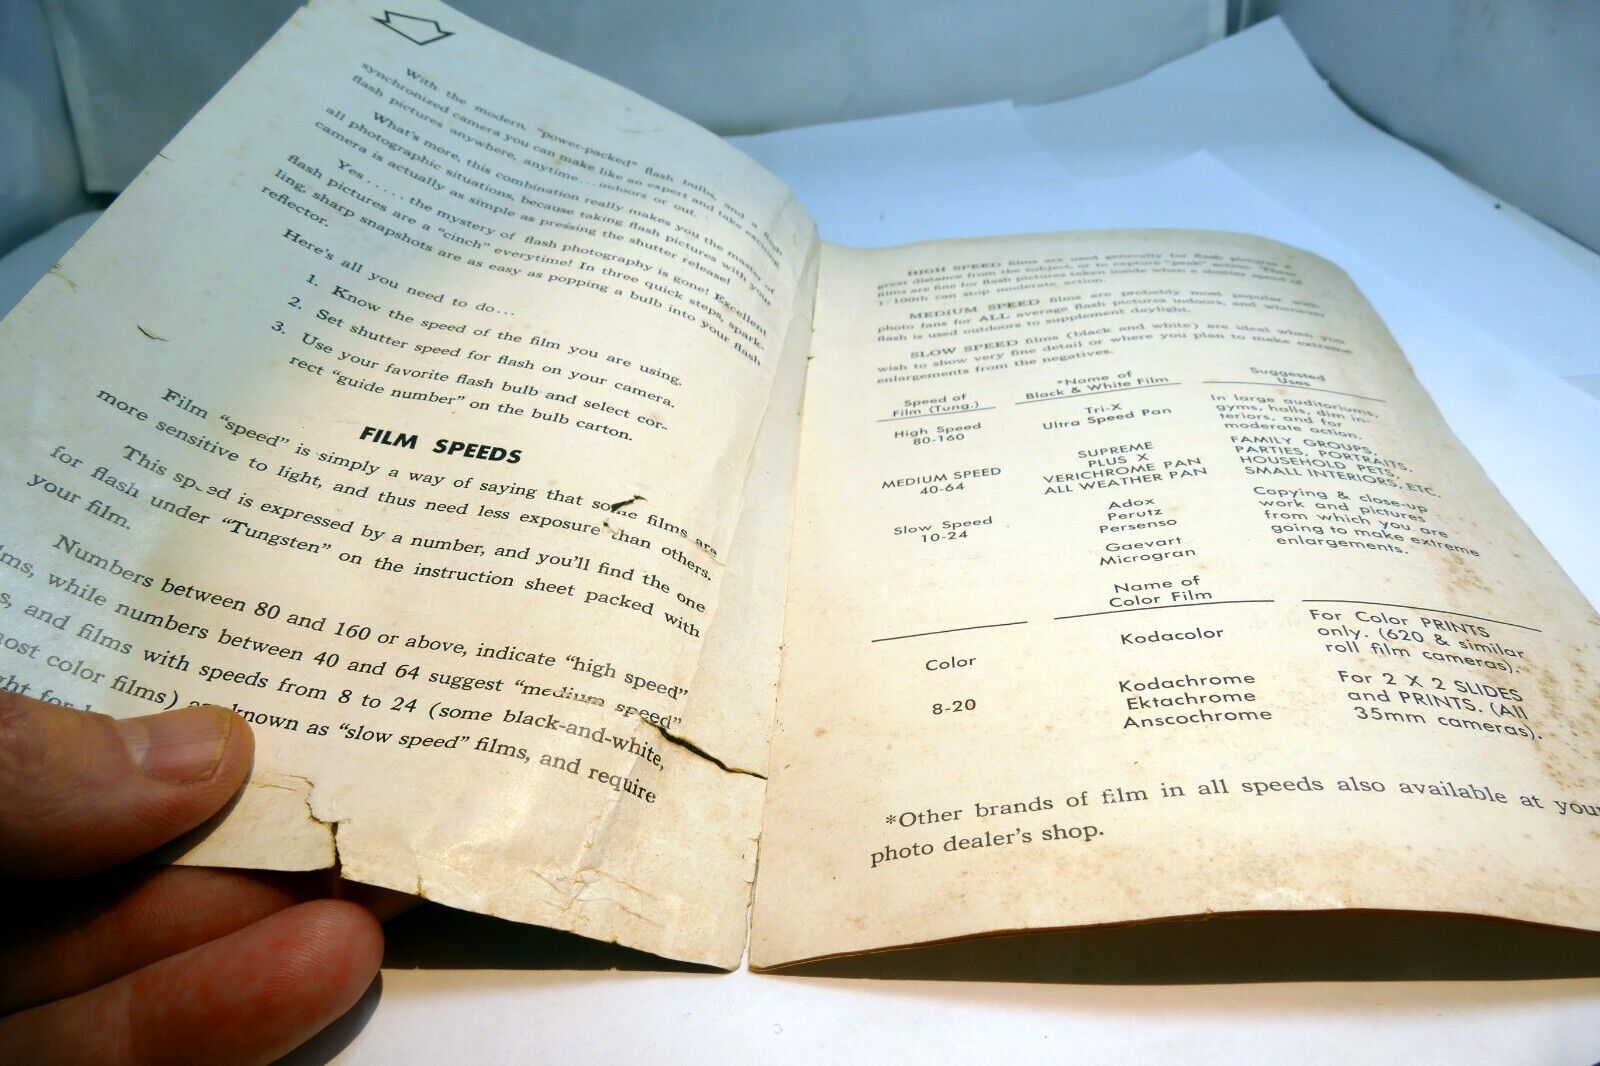 With the modern, "power-packed" flash bulbs and a flash
synchronized camera you can make like an expert and take exciting
flash pictures anywhere, anytime ... indoors or out.
What's more, this combination really makes you the master of
all photographic situations, because taking flash pictures with your
camera is actually as simple as pressing the shutter release!
Yes ..... the mystery of flash photography is gone! Excellent
flash pictures are a "cinch" everytime! In three quick steps, spark-
ling, sharp snapshots are as easy as popping a bulb into your flash
reflector.
Here's all you need to do...
1. Know the speed of the film you are using.
2. Set shutter speed for flash on your camera.
3. Use your favorite flash bulb and select cor-
rect "guide number" on the bulb carton.
FILM SPEEDS
Film "speed" is simply a way of saying that some films are
more sensitive to light, and thus need less exposure than others.
This speed is expressed by a number, and you'll find the one
for flash under "Tungsten" on the instruction sheet packed with
your film.
Numbers between 80 and 160 or above, indicate "high speed"
lms, while numbers between 40 and 64 suggest "medium speed"
s, and films with speeds from 8 to 24 (some black-and-white,
most color films) are known as "slow speed" films, and require
ght for
HIGH SPEED films are used generally for flash pictures a
great distance from the subject, or to capture "peak" action. These
films are fine for flash pictures taken inside when a shutter speed of
1/100th can stop moderate action.
MEDIUM SPEED films are probably most popular with
photo fans for ALL average flash pictures indoors, and whenever
flash is used outdoors to supplement daylight.
SLOW SPEED films (black and white) are ideal when you
wish to show very fine detail or where you plan to make extreme
enlargements from the negatives.
Speed of
Film (Tung.)
*Name of
Black & White Film
Suggested
Uses
High Speed
80-160
Tri-X
Ultra Speed Pan
In large auditoriums,
gyms, halls, dim in-
teriors, and for
moderate action.
MEDIUM SPEED
40-64
SUPREME
PLUS X
VERICHROME PAN
ALL WEATHER PAN
FAMILY GROUPS,
PARTIES, PORTRAITS,
HOUSEHOLD PETS,
SMALL INTERIORS, ETC.
Slow Speed
10-24
Adox
Perutz
Persenso
Gaevart
Microgran
Copying & close-up
work and pictures
from which you are
going to make extreme
enlargements.
Name of
Color Film
Color
8-20
Kodacolor
For Color PRINTS
only. (620 & similar
roll film cameras).
Kodachrome
Ektachrome
Anscochrome
For 2 X 2 SLIDES
and PRINTS. (All
35mm cameras).
*Other brands of film in all speeds also available at your
photo dealer's shop.